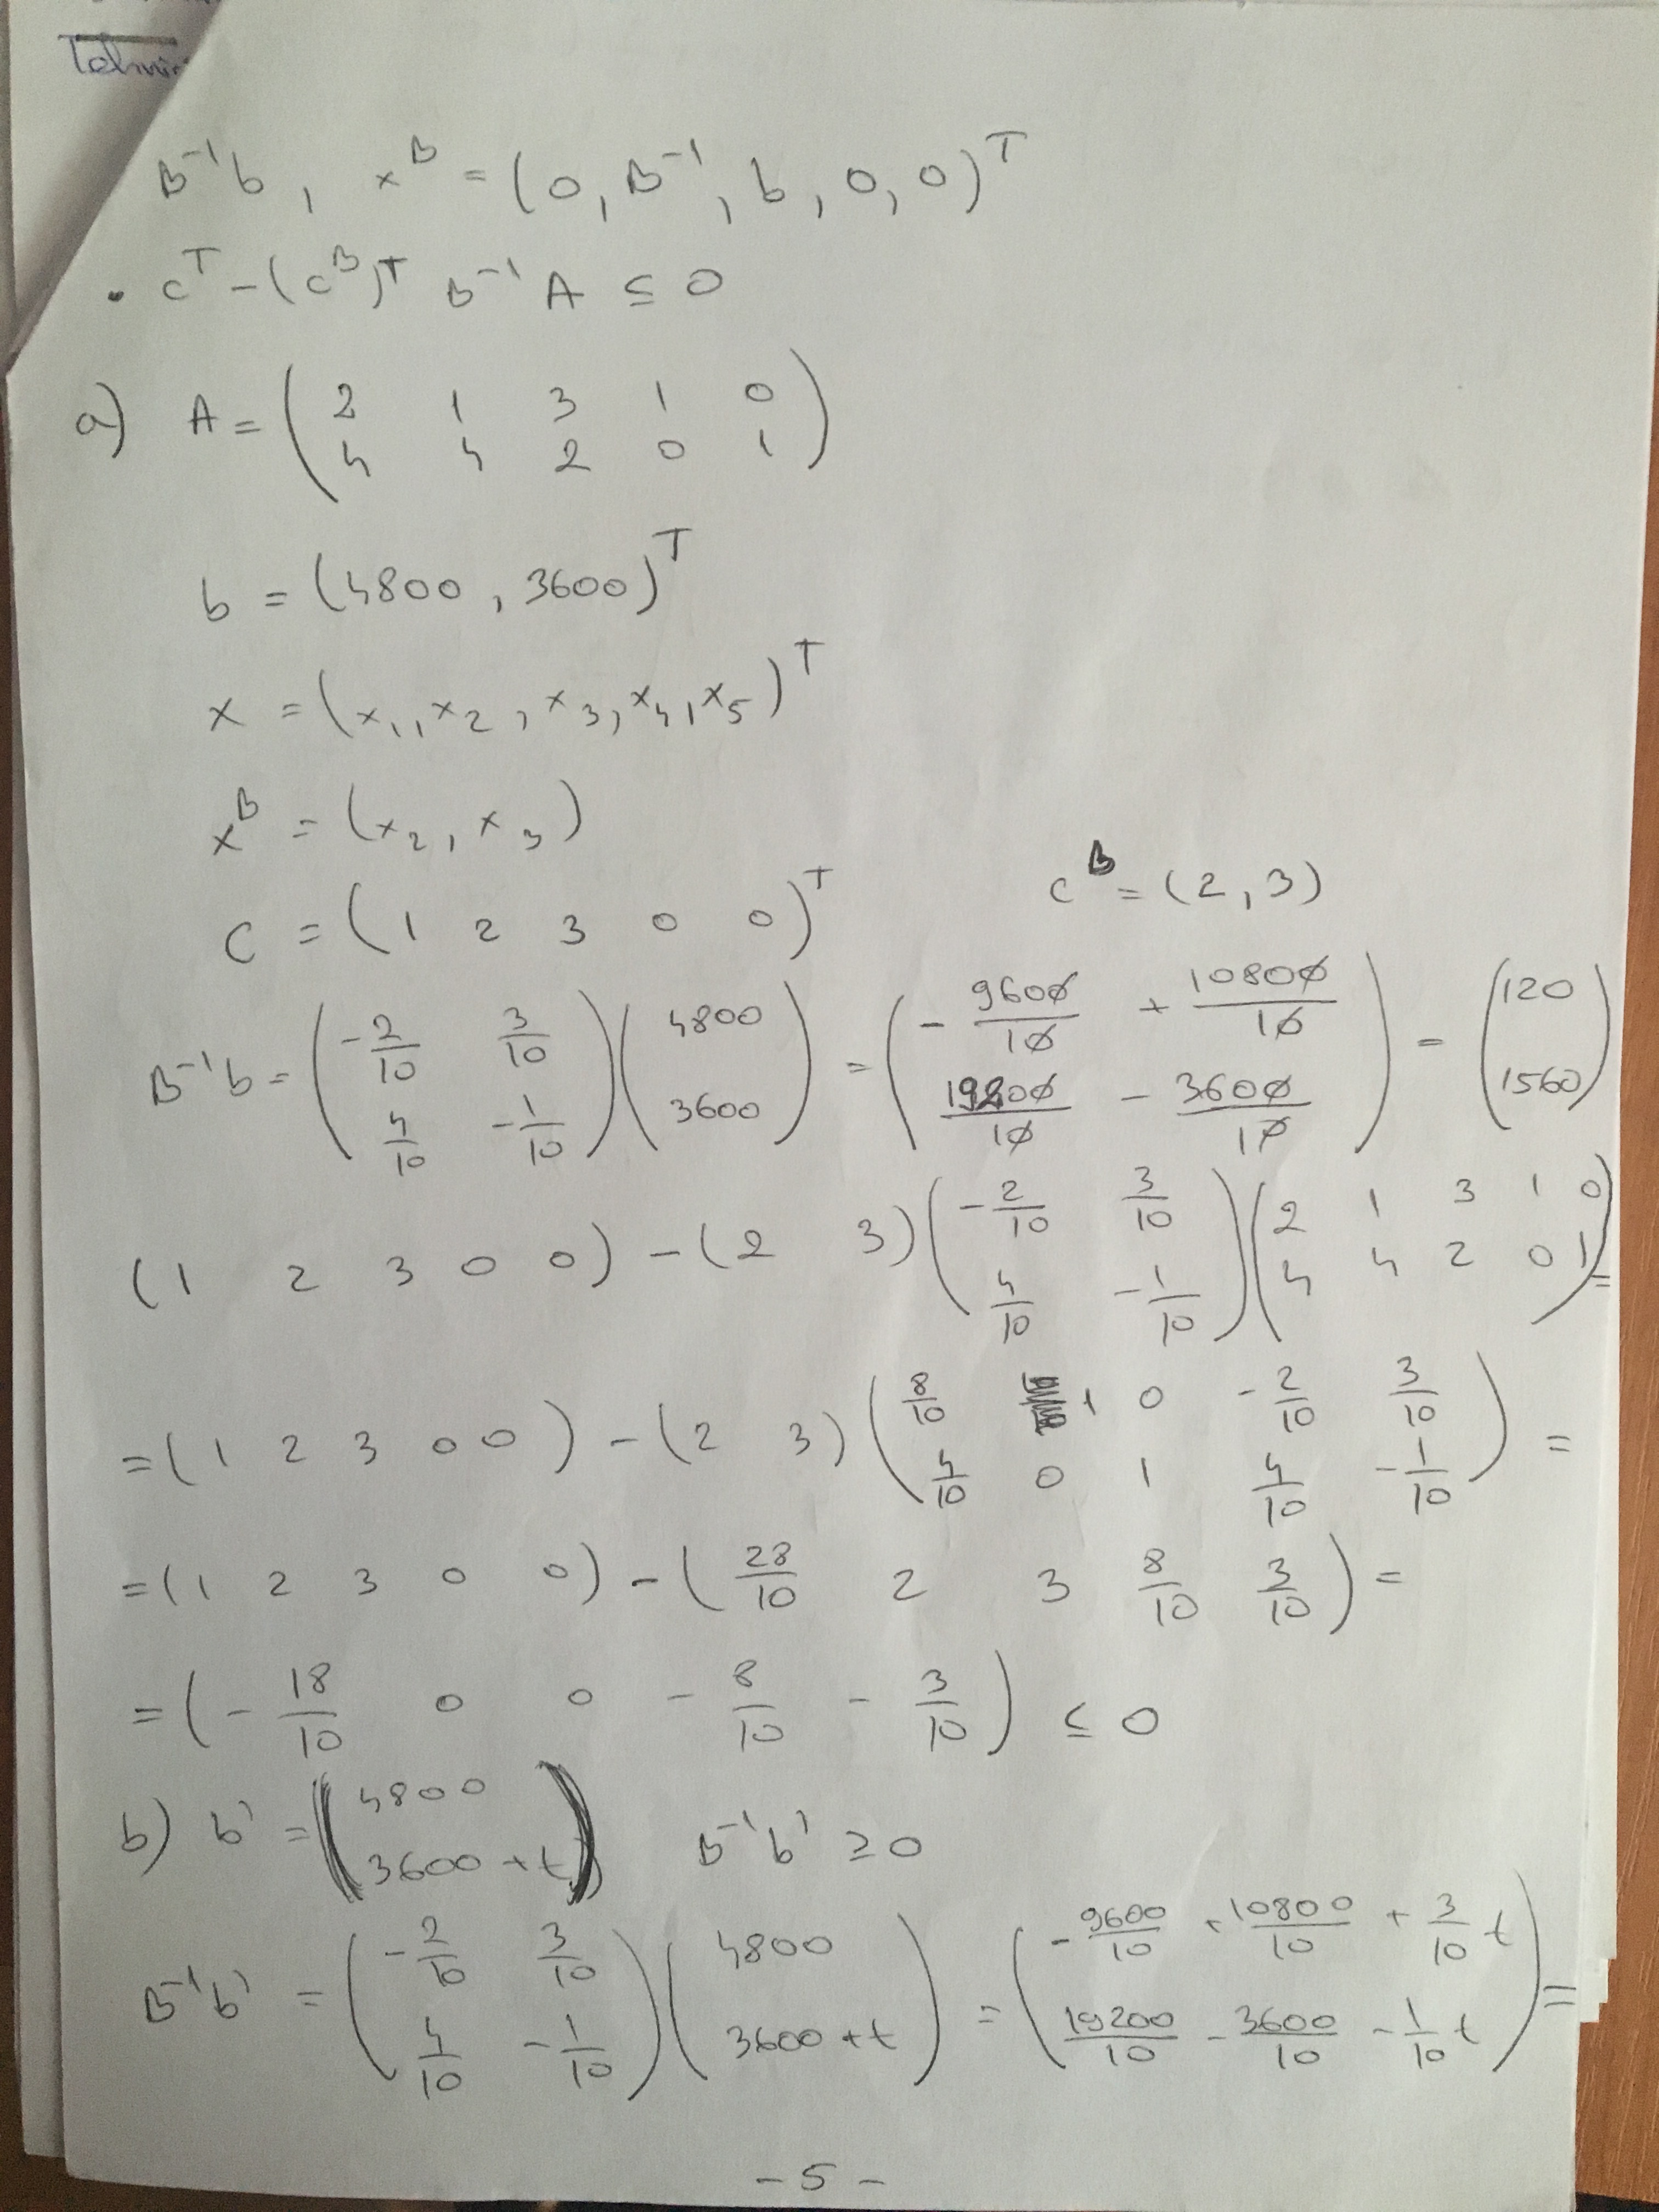 Tehni
B⁻¹b, x^B = (0, B⁻¹, b, 0, 0)^T
• c^T - (c^B)^T B⁻¹ A ≤ 0
a) A = ( 2 1 3 1 0 ; 4 4 2 0 1 )
b = (4800, 3600)^T
x = (x₁, x₂, x₃, x₄, x₅)^T
x^B = (x₂, x₃)
c = (1 2 3 0 0)^T c^B = (2, 3)
B⁻¹b = ( -2/10 3/10 ; 4/10 -1/10 ) ( 4800 ; 3600 ) = ( -9600/10 + 10800/10 ; 19200/10 - 3600/10 ) = ( 120 ; 1560 )
(1 2 3 0 0) - (2 3) ( -2/10 3/10 ; 4/10 -1/10 ) ( 2 1 3 1 0 ; 4 4 2 0 1 ) =
= (1 2 3 0 0) - (2 3) ( 8/10 1 0 -2/10 3/10 ; 4/10 0 1 4/10 -1/10 ) =
= (1 2 3 0 0) - ( 28/10 2 3 8/10 3/10 ) =
= ( -18/10 0 0 -8/10 -3/10 ) ≤ 0
b) b' = ( 4800 ; 3600 + t ) B⁻¹b' ≥ 0
B⁻¹b' = ( -2/10 3/10 ; 4/10 -1/10 ) ( 4800 ; 3600 + t ) = ( -9600/10 + 10800/10 + 3/10 t ; 19200/10 - 3600/10 - 1/10 t ) =
- 5 -